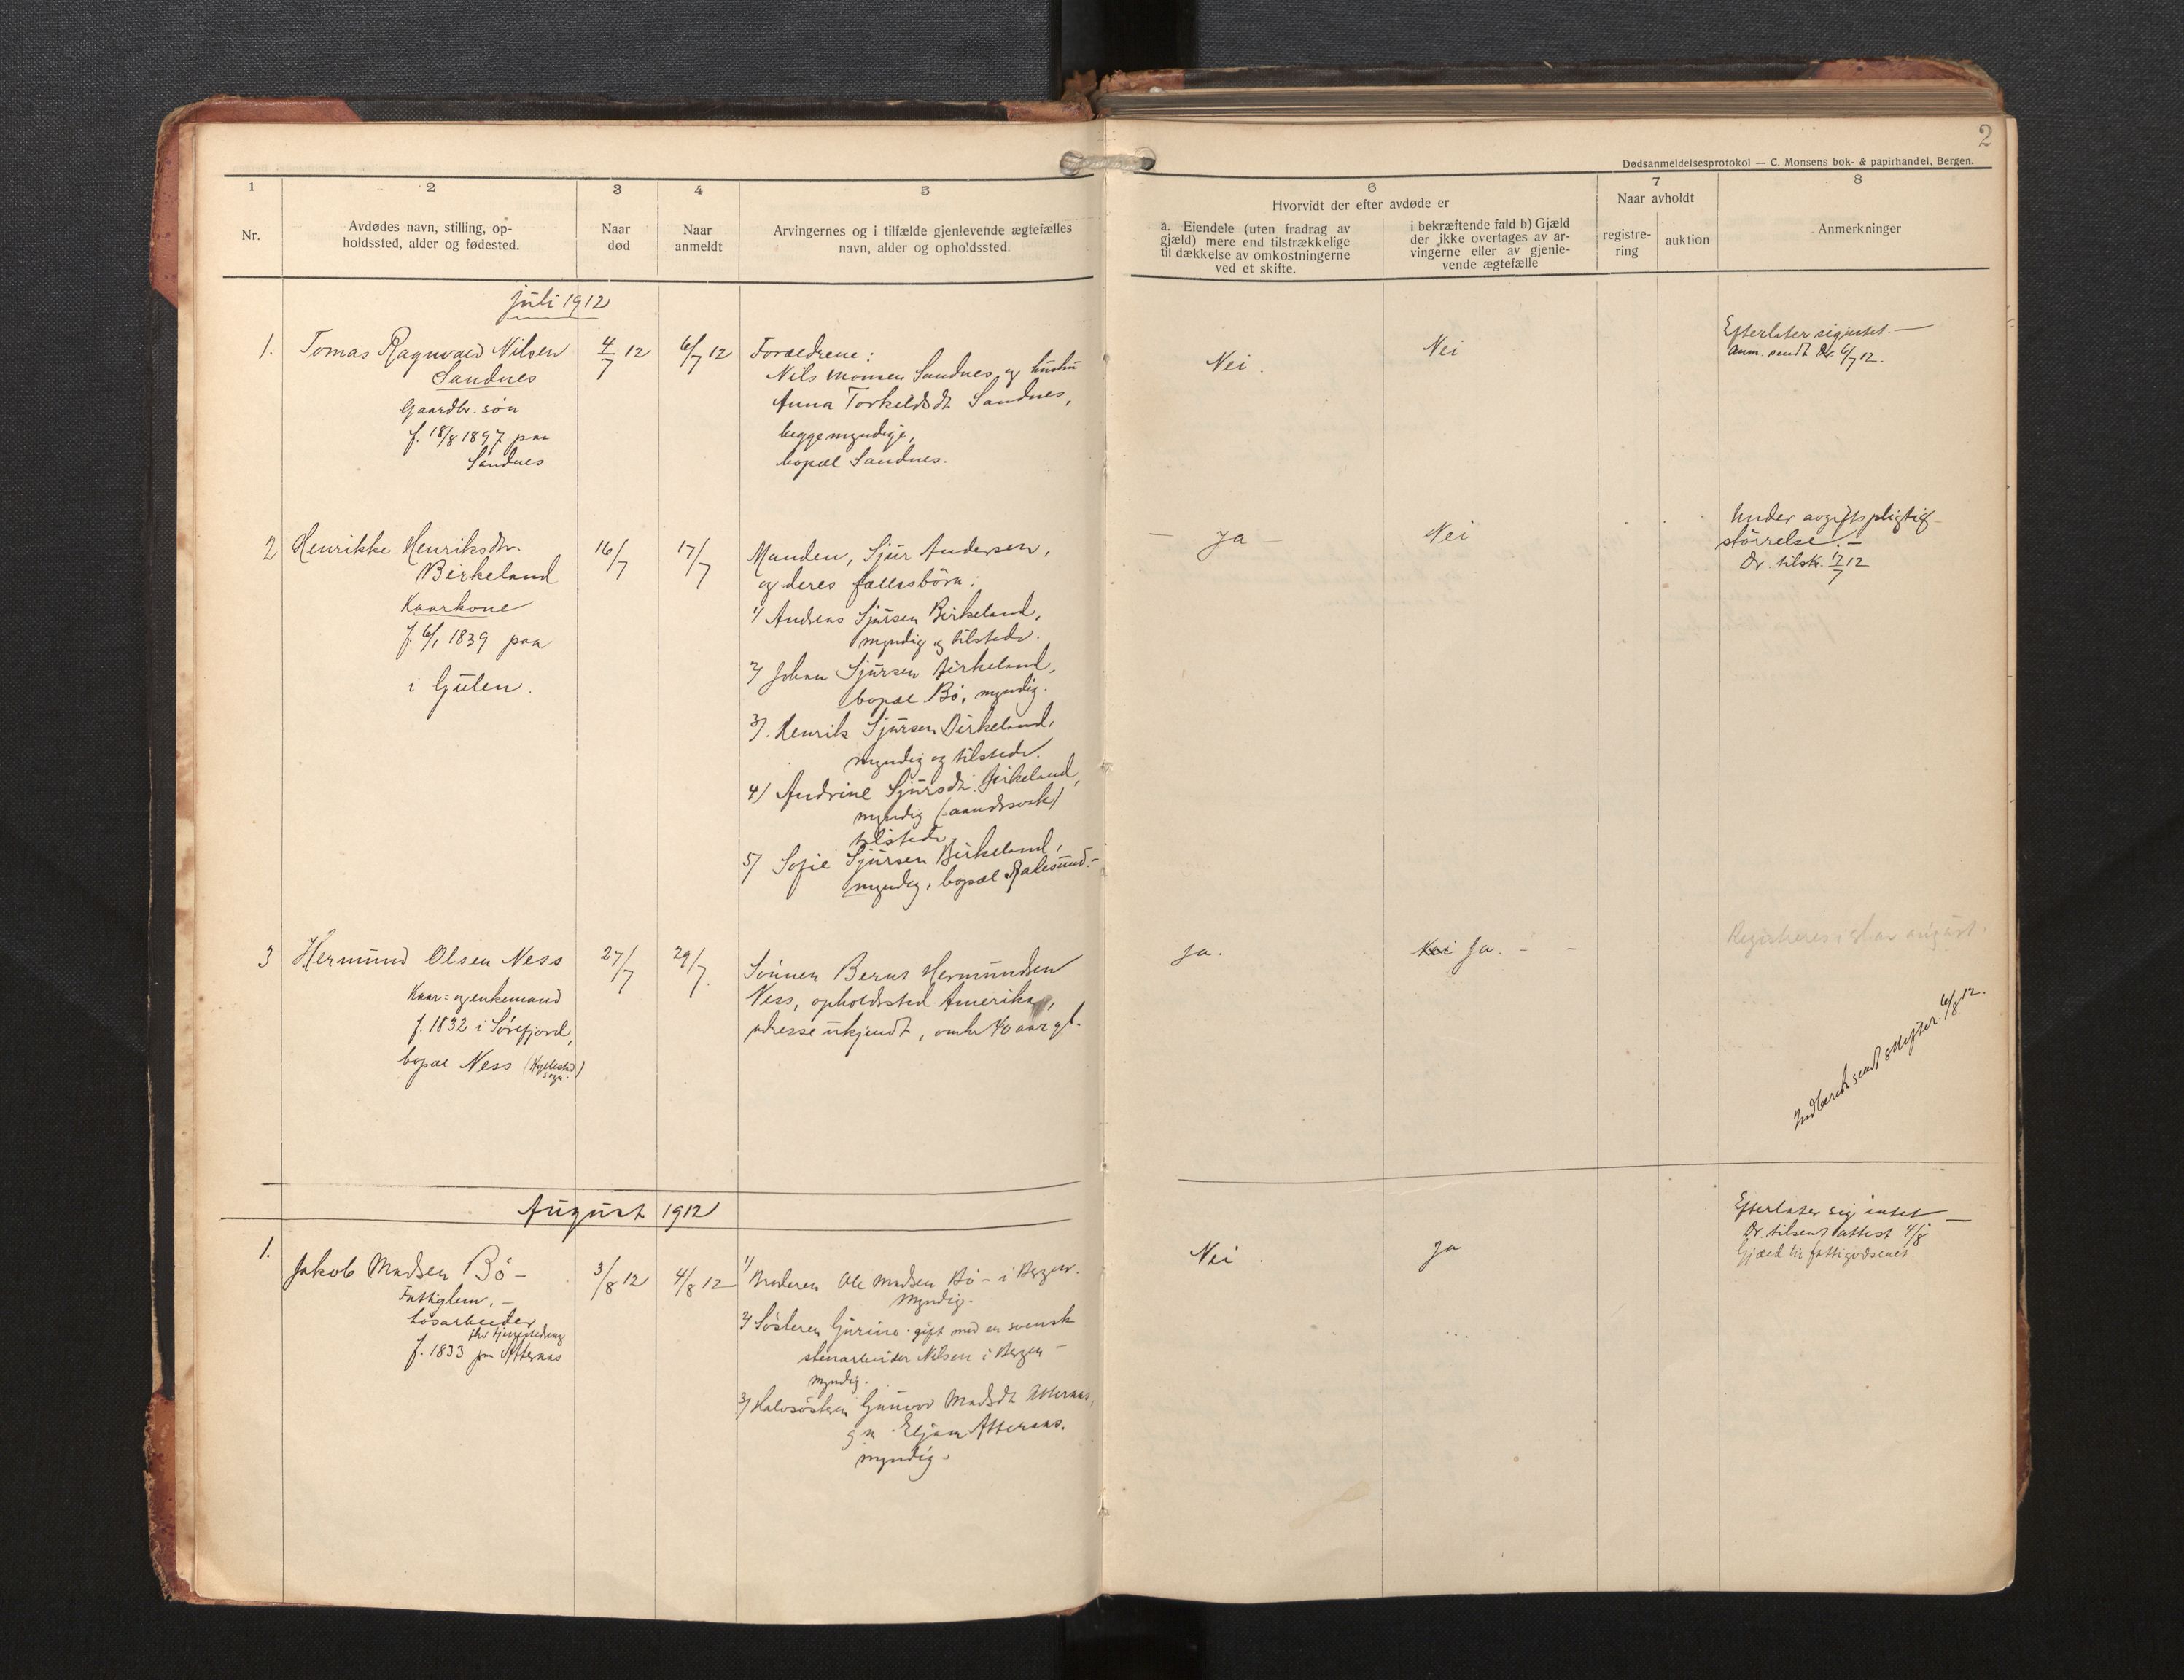 2
Dødsanmeldelsesprotokol — C. Monsens bok- & papirhandel, Bergen.
1
2
3
4
5
6
7
8
Nr.
Avdødes navn, stilling, op-
holdssted, alder og fødested.
Naar
død
Naar
anmeldt
Arvingernes og i tilfælde gjenlevende ægtefælles
navn, alder og opholdssted.
Hvorvidt der efter avdøde er
a. Eiendele (uten fradrag av
gjæld) mere end tilstrækkelige
til dækkelse av omkostningerne
ved et skifte.
i bekræftende fald b) Gjæld
der ikke overtages av ar-
vingerne eller av gjenle-
vende ægtefælle
Naar avholdt
registre-
ring
auktion
Anmerkninger
Juli 1912
1.
Tomas Ragnvald Nilsen
Sandnes
Gaardbr. søn
f. 18/8 1897 paa
Sandnes
4/7 12
6/7 12
Forældrene:
Nils Monsen Sandnes og hustru
Anna Torkeldsdt. Sandnes,
begge myndige,
bopæl Sandnes.
Nei.
Nei
Efterlater sig intet. —
anm. sendt Dr. 6/7 12.
2
Henrikke Henriksdtr.
Birkeland
Kaarkone
f. 6/1 1839 paa
i Gulen.
16/7
17/7
Manden, Sjur Andersen,
og deres fællesbørn:
1/ Andreas Sjursen Birkeland,
myndig og tilstede.
2/ Johan Sjursen Birkeland,
bopæl Bö, myndig.
3/. Henrik Sjursen Birkeland,
myndig og tilstede.
4/ Andrine Sjursdt. Birkeland,
myndig (aandssvak)
tilstede.
5/ Sofie Sjursen Birkeland,
myndig, bopæl Aalesund.-
— Ja —
Nei
Under avgiftspligtig
størrelse. —
Dr. tilsk. 17/7 12
3
Hermund Olsen Ness
Kaar= og enkemand
f. 1832 i Sörefjord,
bopæl Ness (Hyllestad
sogn.)
27/7
29/7.
Sönnen Bernt Hermundsen
Ness, opholdssted Amerika,
adresse ukjendt, omtr 40 aar gl.
Ja.
Nei Ja. - -
Registreres i august.
Indberetn. sendt skifter. 6/8 12.
August 1912
1.
Jakob Madsen Bö -
Fattiglem. -
Lösarbeider
f. 1833 paa Atteraas
3/8 12
4/8 12
1/ Broderen Ole Madsen Bö - i Bergen.
Myndig.
2/ Søsteren Gurine gift med en svensk
stenarbeider Nilsen i Bergen -
myndig.
3/ Halvsösteren Gunvor Madsdt Atteraas,
g. m. Eljam Atteraas.
myndig.
Nei.
Ja
Efterlater sig intet —
Dr. tilsendt attest 4/8
Gjæld til fattigvæsenet.